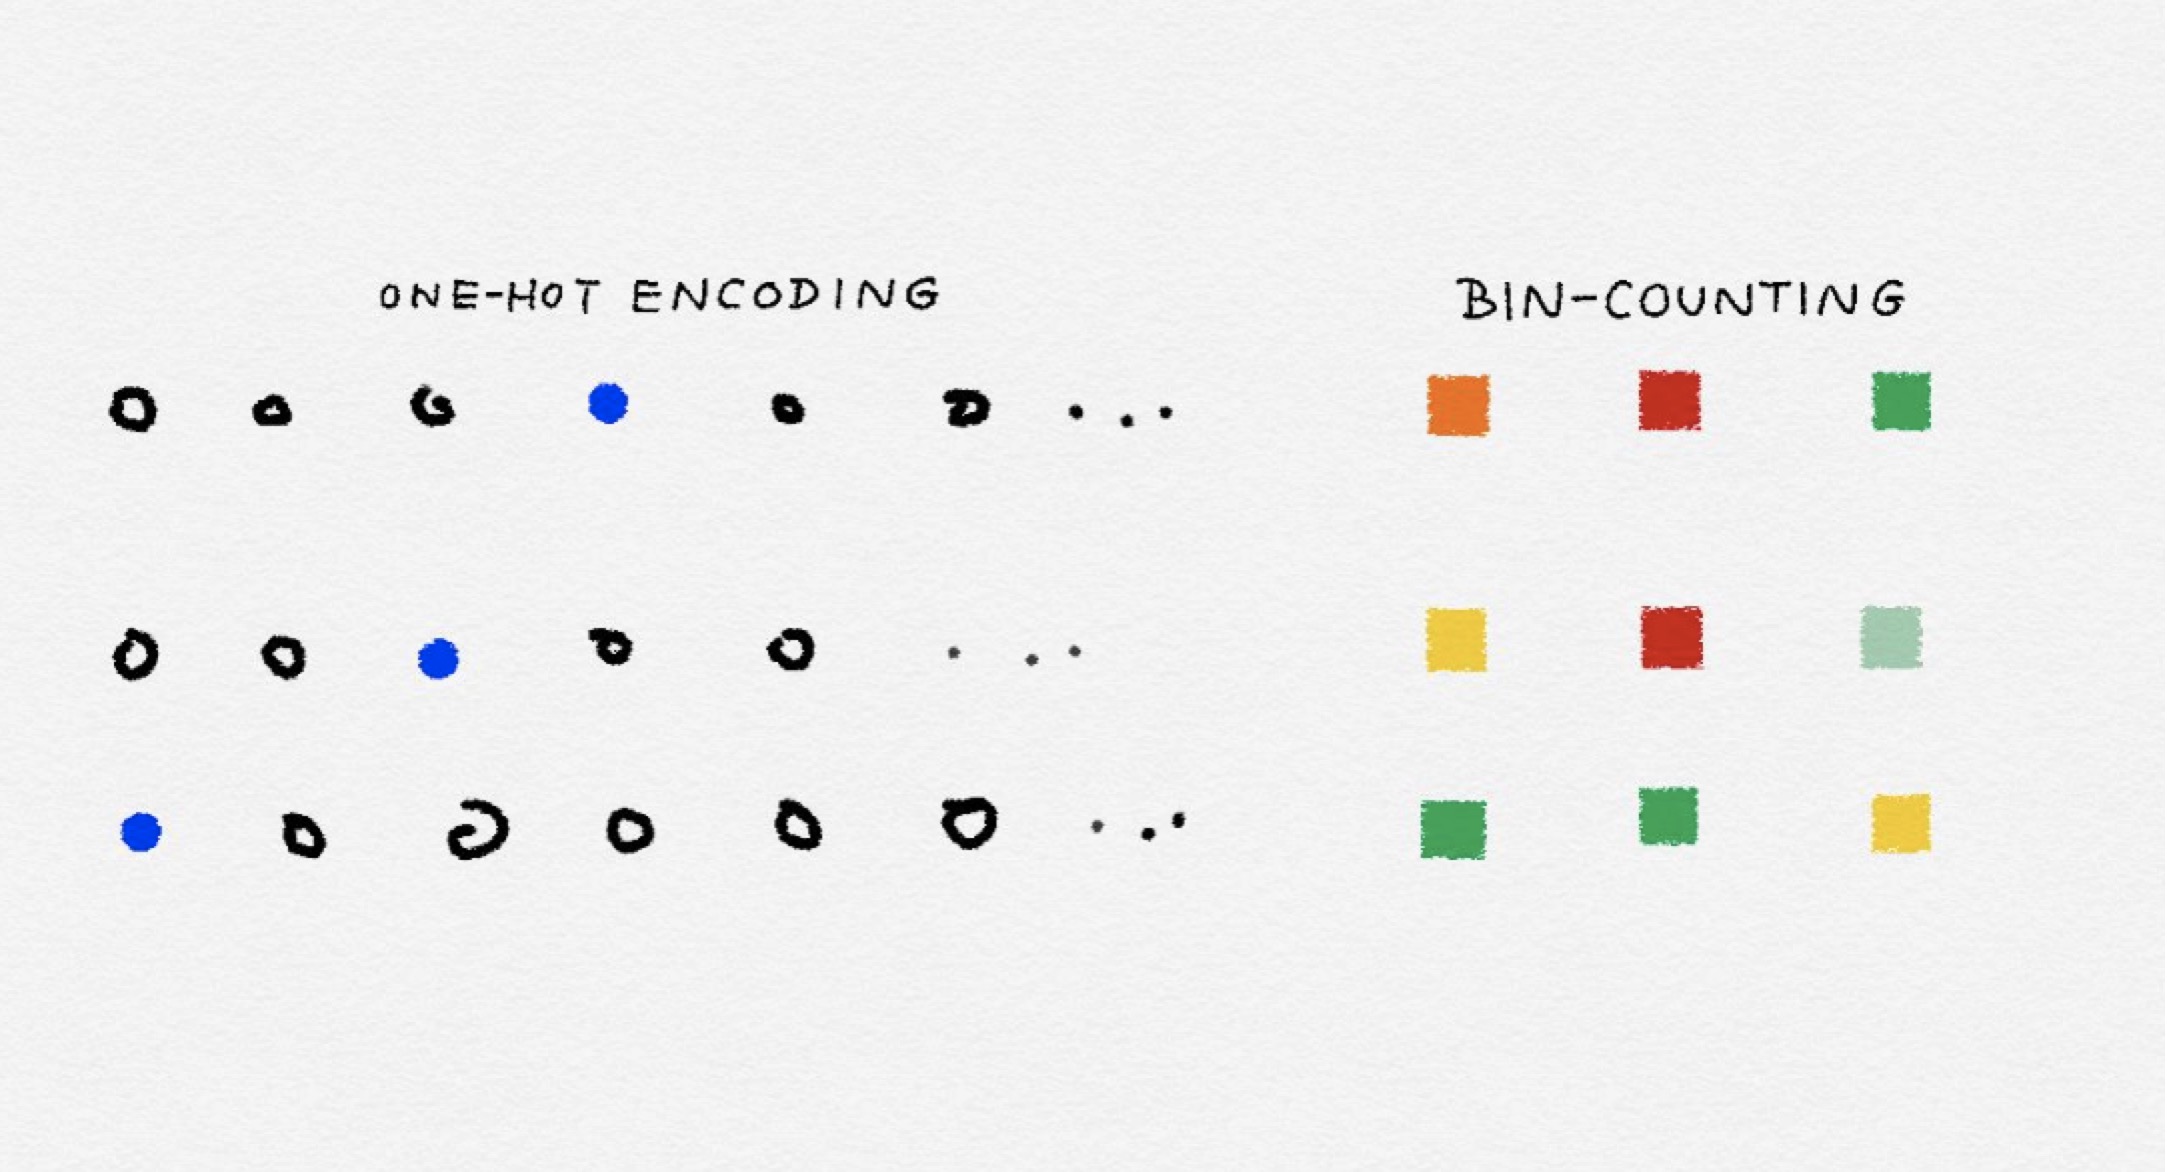 ONE-HOT ENCODING
BIN-COUNTING